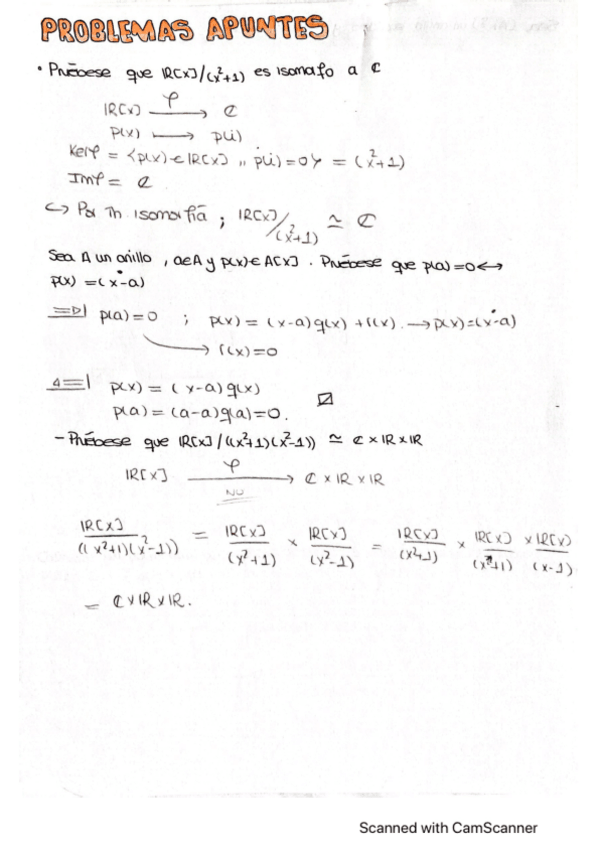 PROBLEMAS APUNTES
• Pruébese que IR[x]/(x²+1) es isomorfo a ℂ
IR[x] —φ→ ℂ
p(x) ⟶ p(i)
Kerφ = {p(x) ∈ IR[x] ,, p(i)=0} = (x²+1)
Imφ = ℂ
↪ Por Th isomorfía ; IR[x]/(x²+1) ≃ ℂ
Sea A un anillo , a∈A y p(x)∈A[x] . Pruébese que p(a)=0 ↔
p(x) = (x-a)
⇒| p(a)=0 ; p(x) = (x-a)q(x) + r(x) . → p(x)=(x-a)
→ r(x)=0
⇐| p(x) = (x-a)q(x)
p(a) = (a-a)q(a)=0.
- Pruébese que IR[x]/((x²+1)(x²-1)) ≃ ℂ x IR x IR
IR[x] —φ→ ℂ x IR x IR
NU
IR[x]/((x²+1)(x²-1)) = IR[x]/(x²+1) x IR[x]/(x²-1) = IR[x]/(x²+1) x IR[x]/(x+1) x IR[x]/(x-1)
= ℂ x IR x IR.
Scanned with CamScanner